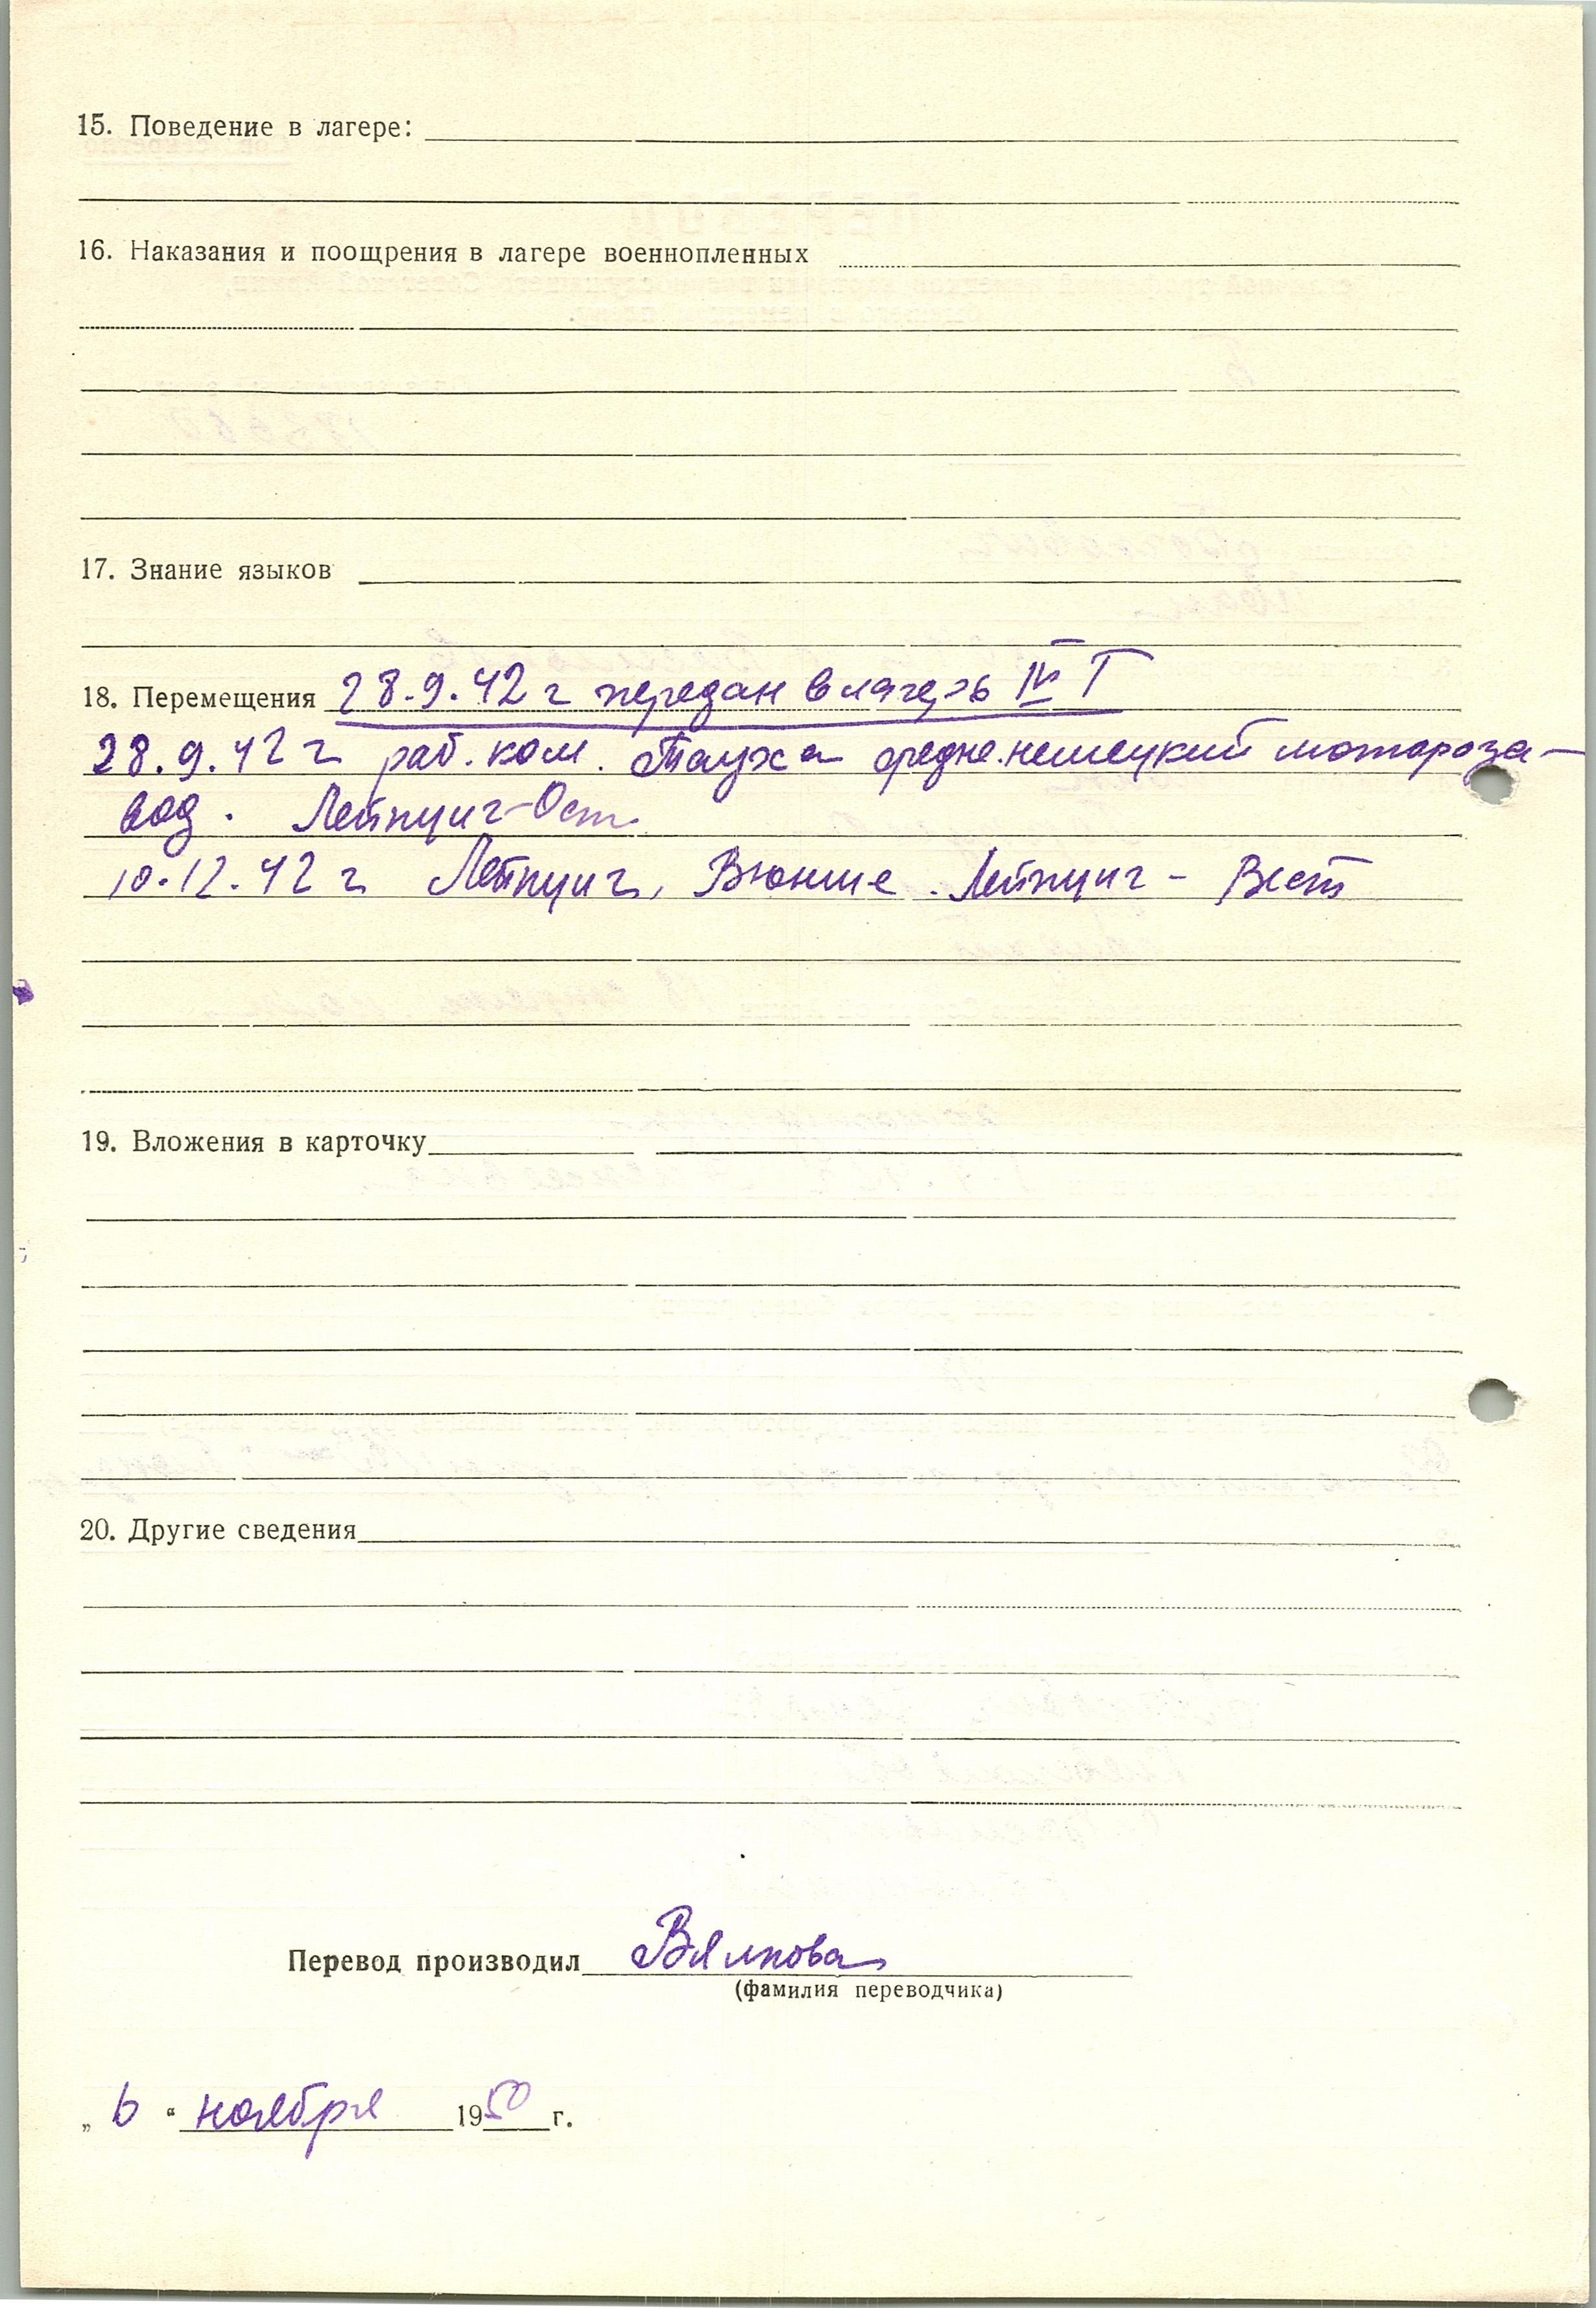 15. Поведение в лагере:
16. Наказания и поощрения в лагере военнопленных
17. Знание языков
18. Перемещения 28.9.42 г передан в лагерь IV Г
28.9.42 г раб. ком. Тауха средне.немецкий мотороза-
вод. Лейпциг-Ост
10.12.42 г Лейпциг, Вюнше. Лейпциг - Вест
19. Вложения в карточку
20. Другие сведения
Перевод производил Вялкова
(фамилия переводчика)
„ 6 “ ноября 1950 г.